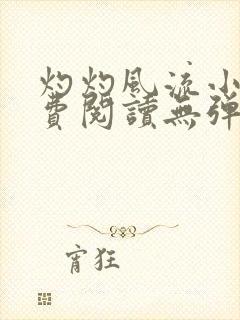 灼灼風流小
費閱讀無彈
宵狂